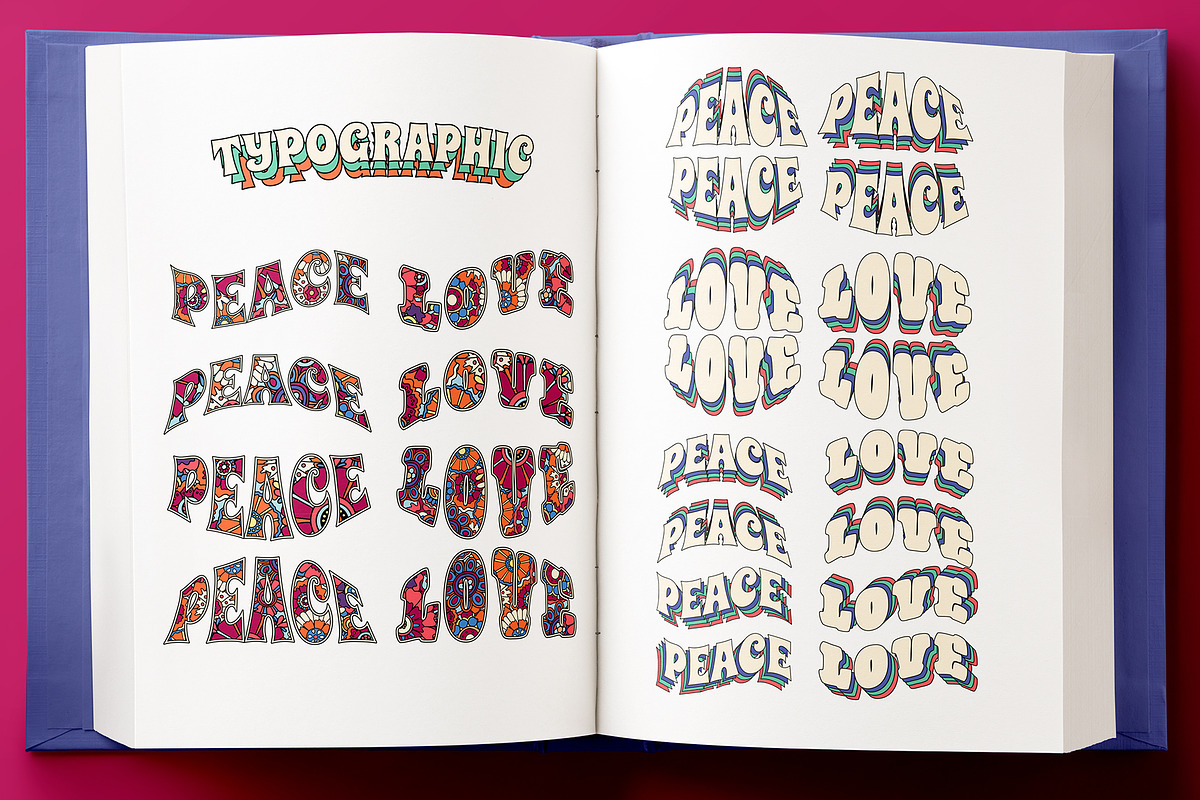 TYPOGRAPHIC
PEACE LOVE
PEACE LOVE
PEACE LOVE
PEACE LOVE
PEACE PEACE
PEACE PEACE
LOVE LOVE
LOVE LOVE
PEACE LOVE
PEACE LOVE
PEACE LOVE
PEACE LOVE